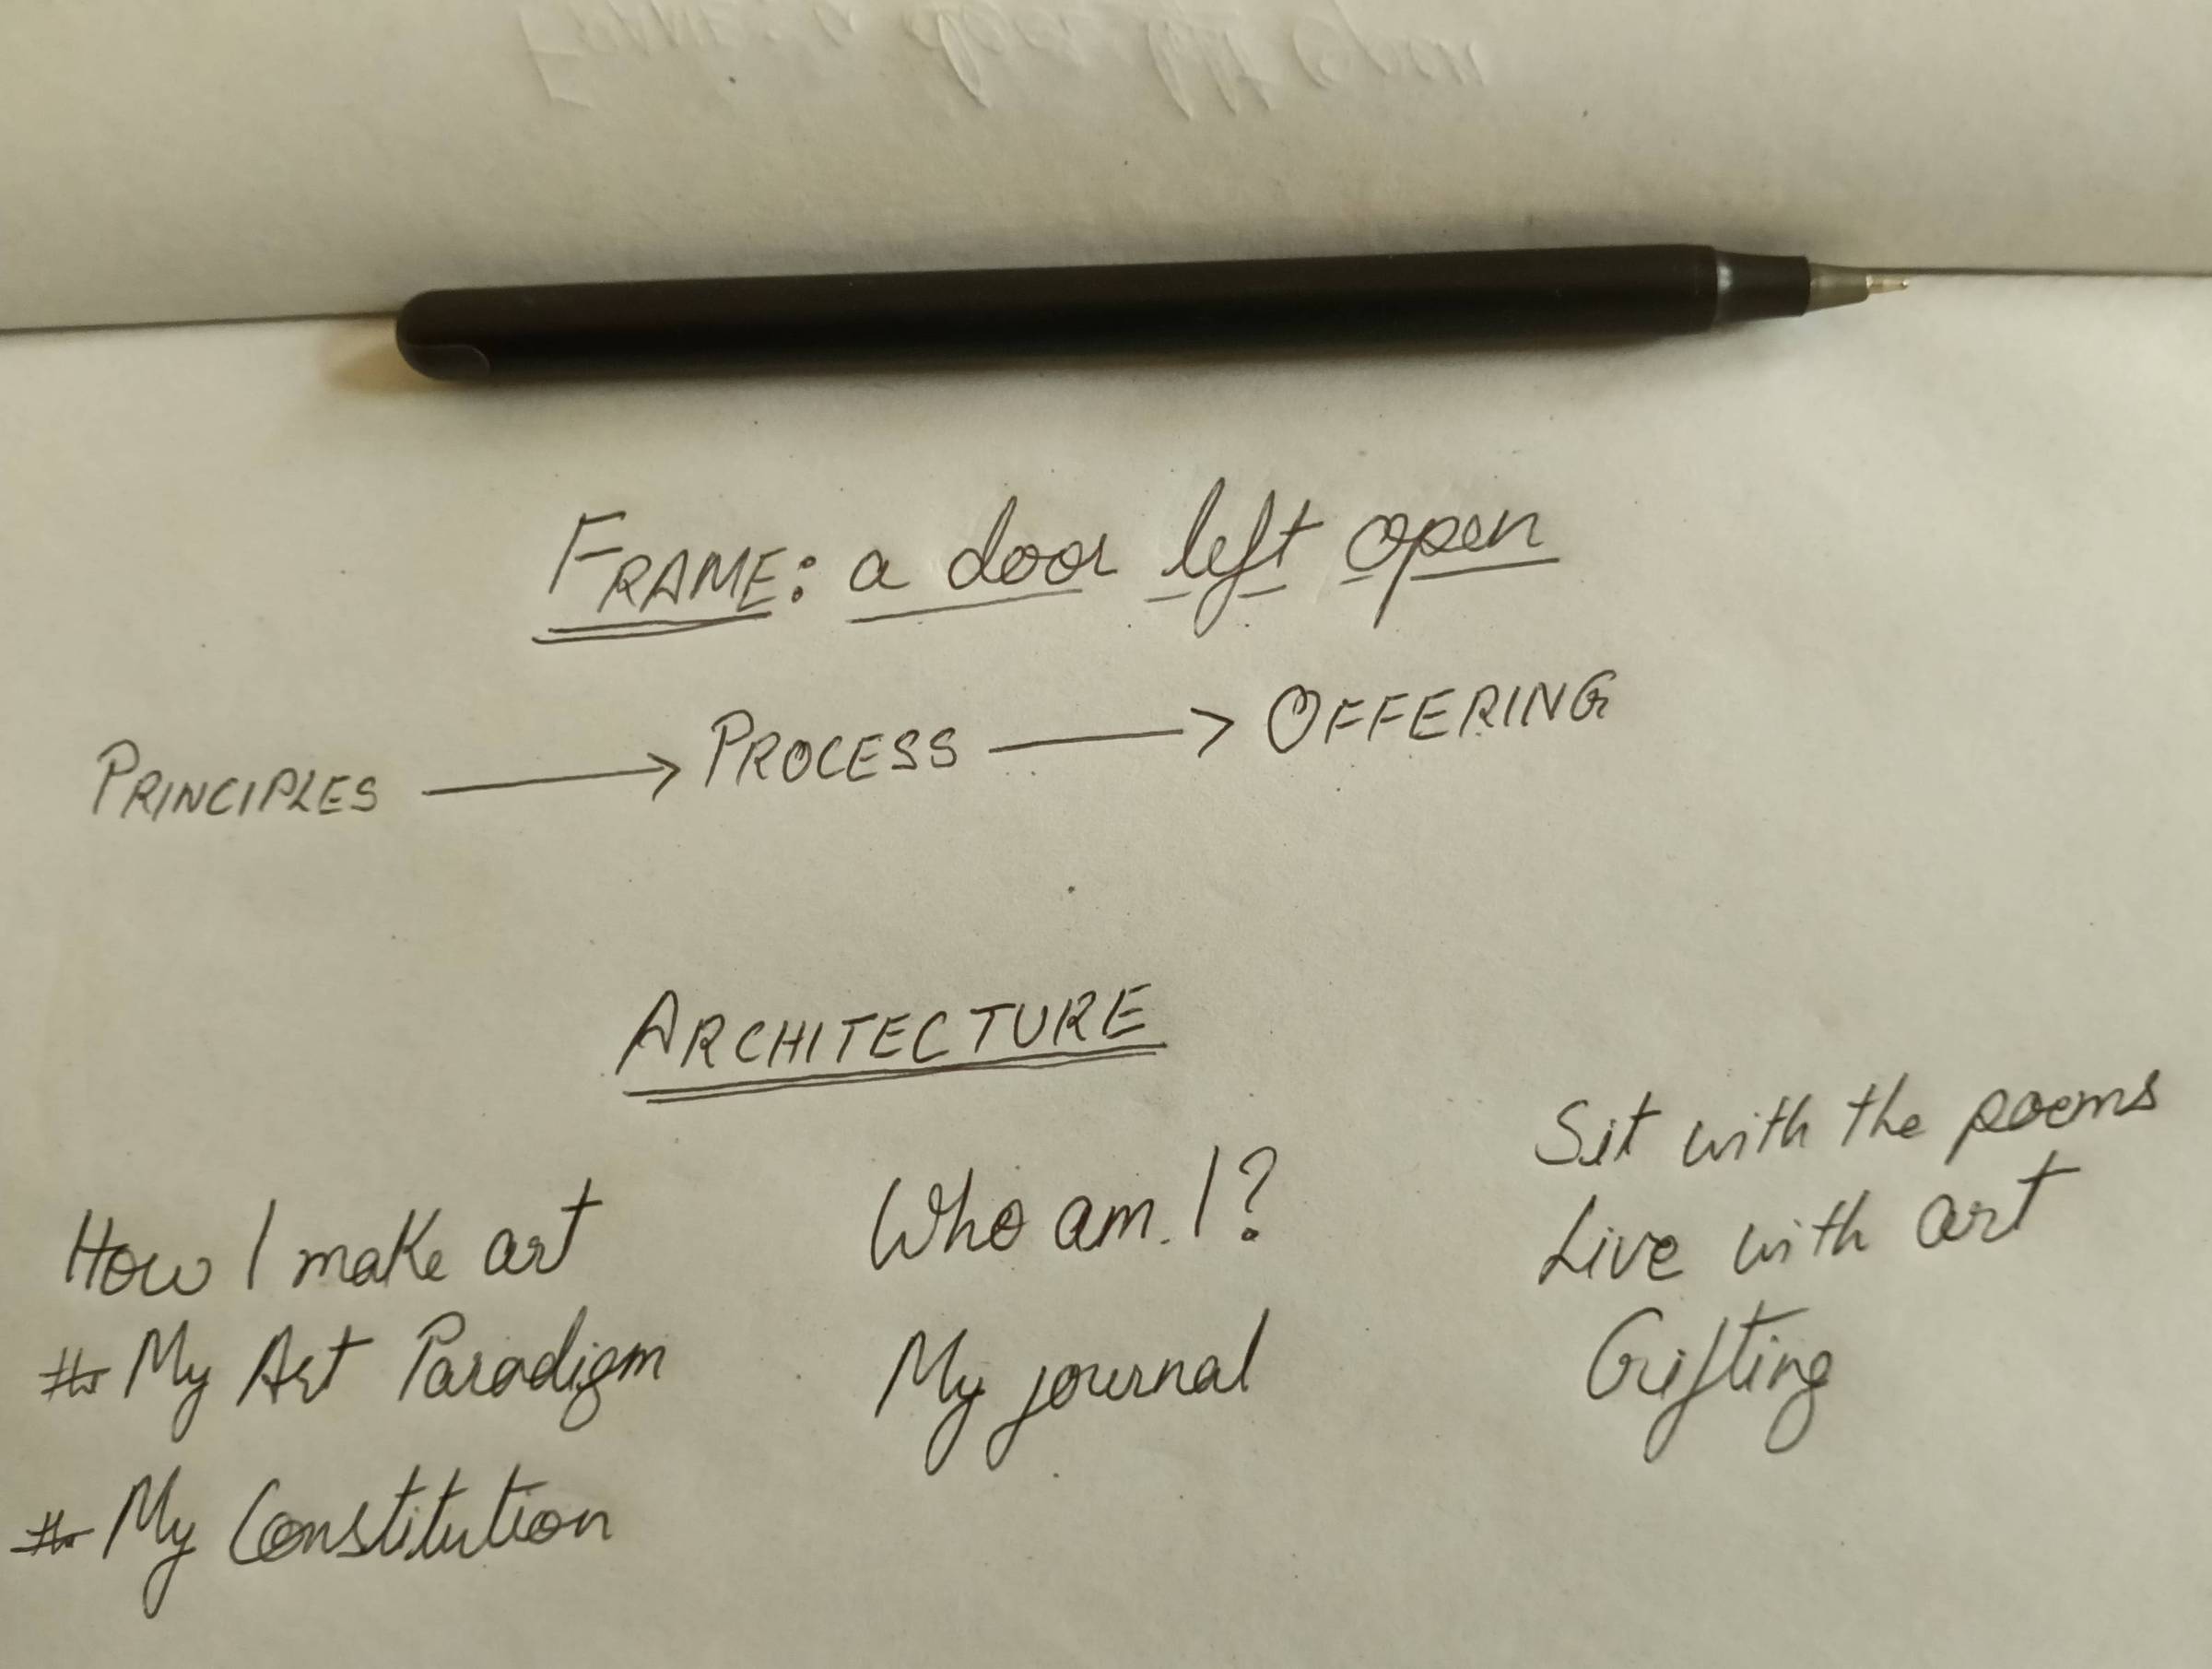 FRAME: a door left open
PRINCIPLES → PROCESS → OFFERING
ARCHITECTURE
How I make art
# My Art Paradigm
# My Constitution
Who am I?
My journal
Sit with the poems
Live with art
Gifting